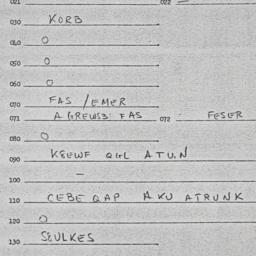 021 022
030 KORB
040 O
050 O
060 O
070 FAS / EMER
071 A GREWSB FAS 072 FESER
080 O
090 KEEWF QIGL ATUN
100 –
110 CEBE QAP AKU ATRUNK
120 O
130 SEULKES